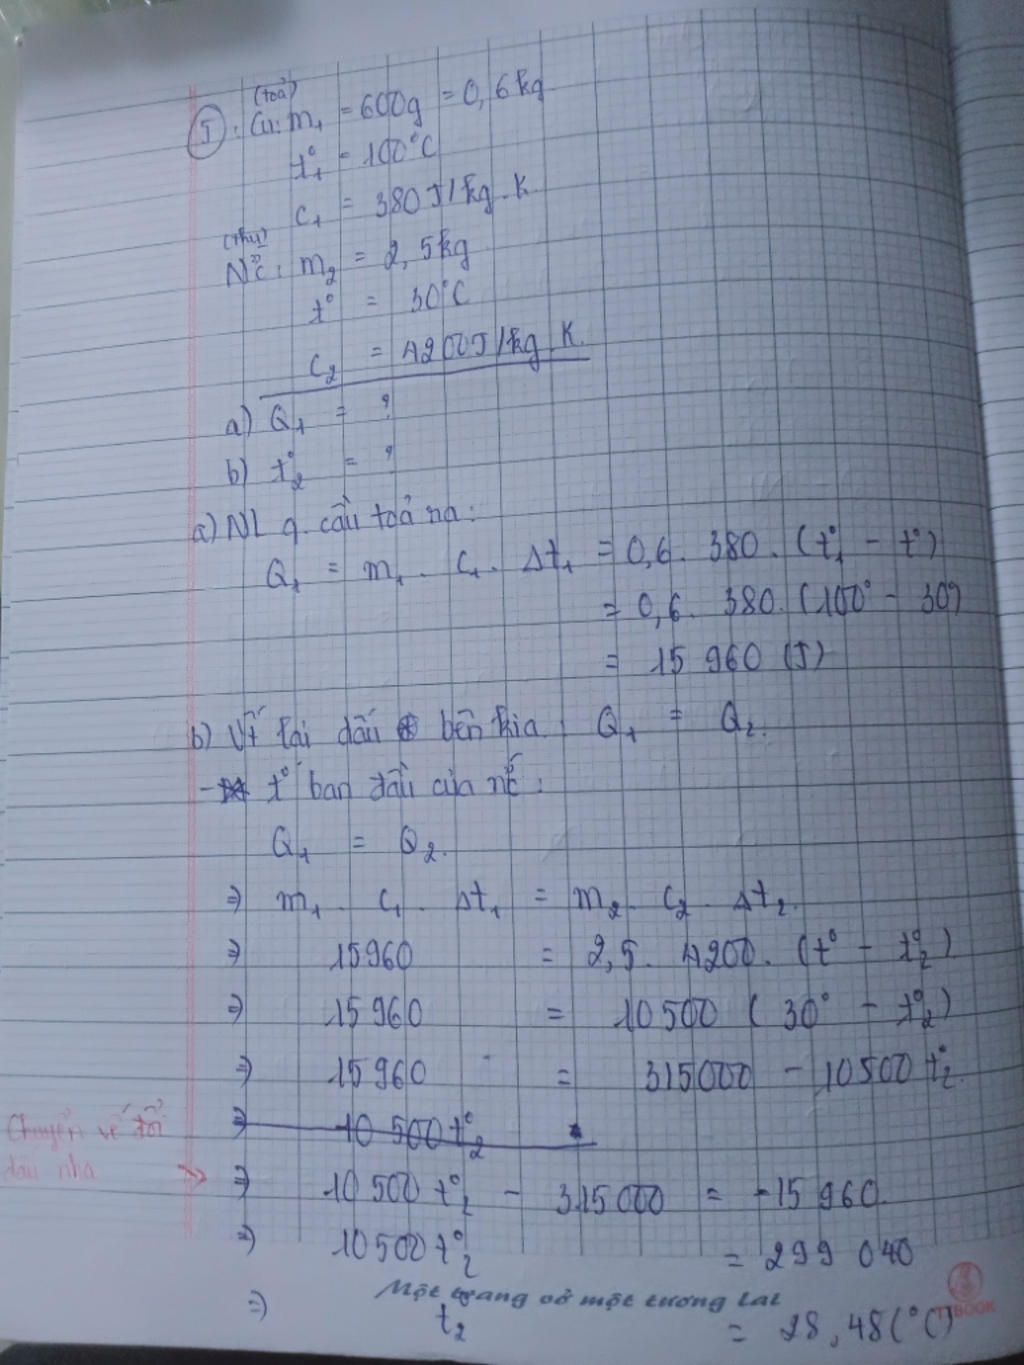 (toả)
5: Cu: m₁ = 600g = 0,6 kg
t°₁ = 100°C
c₁ = 380 J/kg.K
(thu)
Nc: m₂ = 2,5kg
t° = 30°C
c₂ = 4200J/kg K.
a) Q₁ = ?
b) t°₂ = ?
a) NL q. cầu toả ra:
Q₁ = m₁ . c₁ . Δt₁ = 0,6 . 380 . (t°₁ - t°)
= 0,6 . 380 . (100° - 30°)
= 15 960 (J)
b) Vt lại dấu bên kia: Q₁ = Q₂.
- t° ban đầu của nc:
Q₁ = Q₂.
⇒ m₁ . c₁ . Δt₁ = m₂ . c₂ . Δt₂.
⇒ 15960 = 2,5 . 4200 . (t° - t°₂).
⇒ 15 960 = 10 500 (30° - t°₂)
⇒ 15 960 = 315000 - 10500 t°₂.
⇒ 10 500 t°₂
Chuyển vế đổi
dấu nha
⇒ 10 500 t°₂ - 315 000 = -15 960.
⇒ 10 500 t°₂ = 299 040
Một trang vở một tương lai
⇒ t₂ = 28,48 (°C)